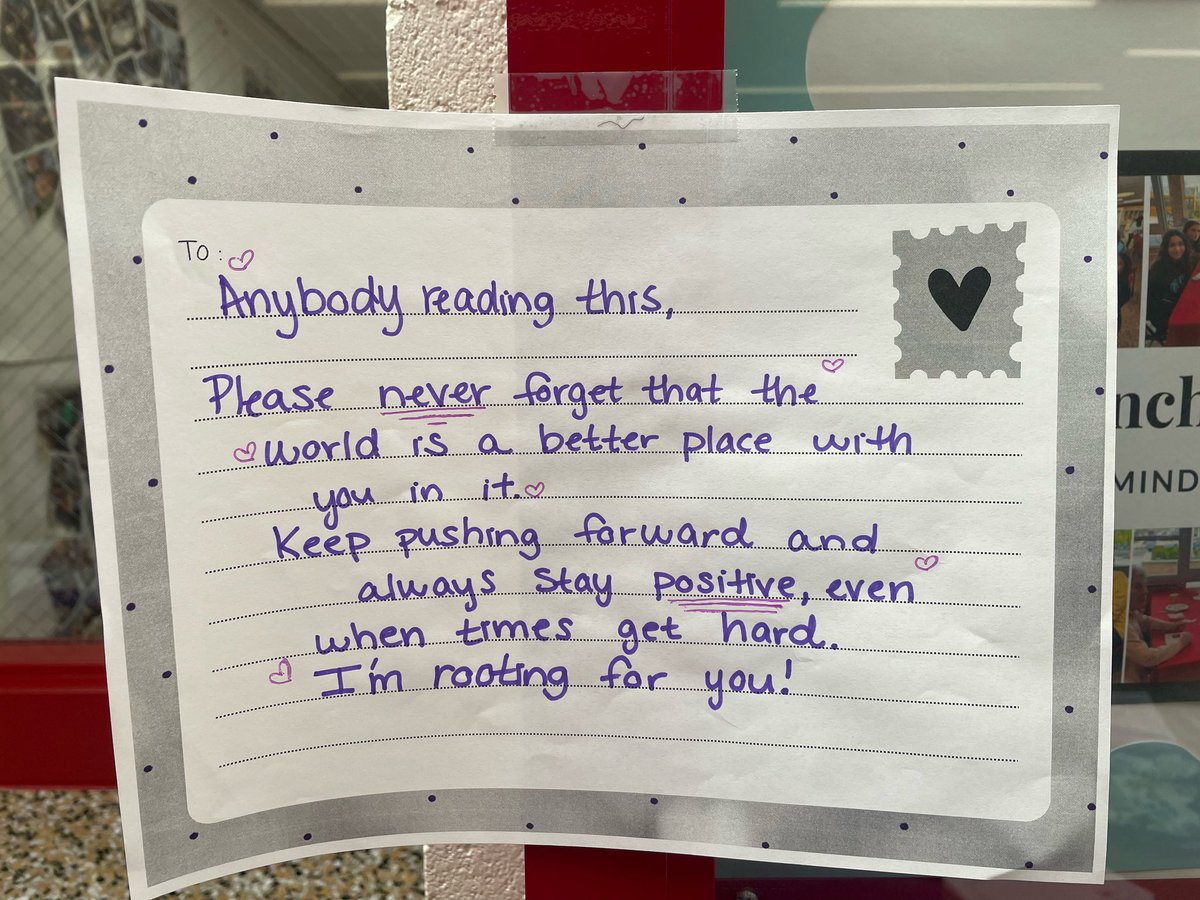 To:
Anybody reading this,
Please never forget that the
world is a better place with
you in it.
Keep pushing forward and
always stay positive, even
when times get hard.
I'm rooting for you!
nch
MIND